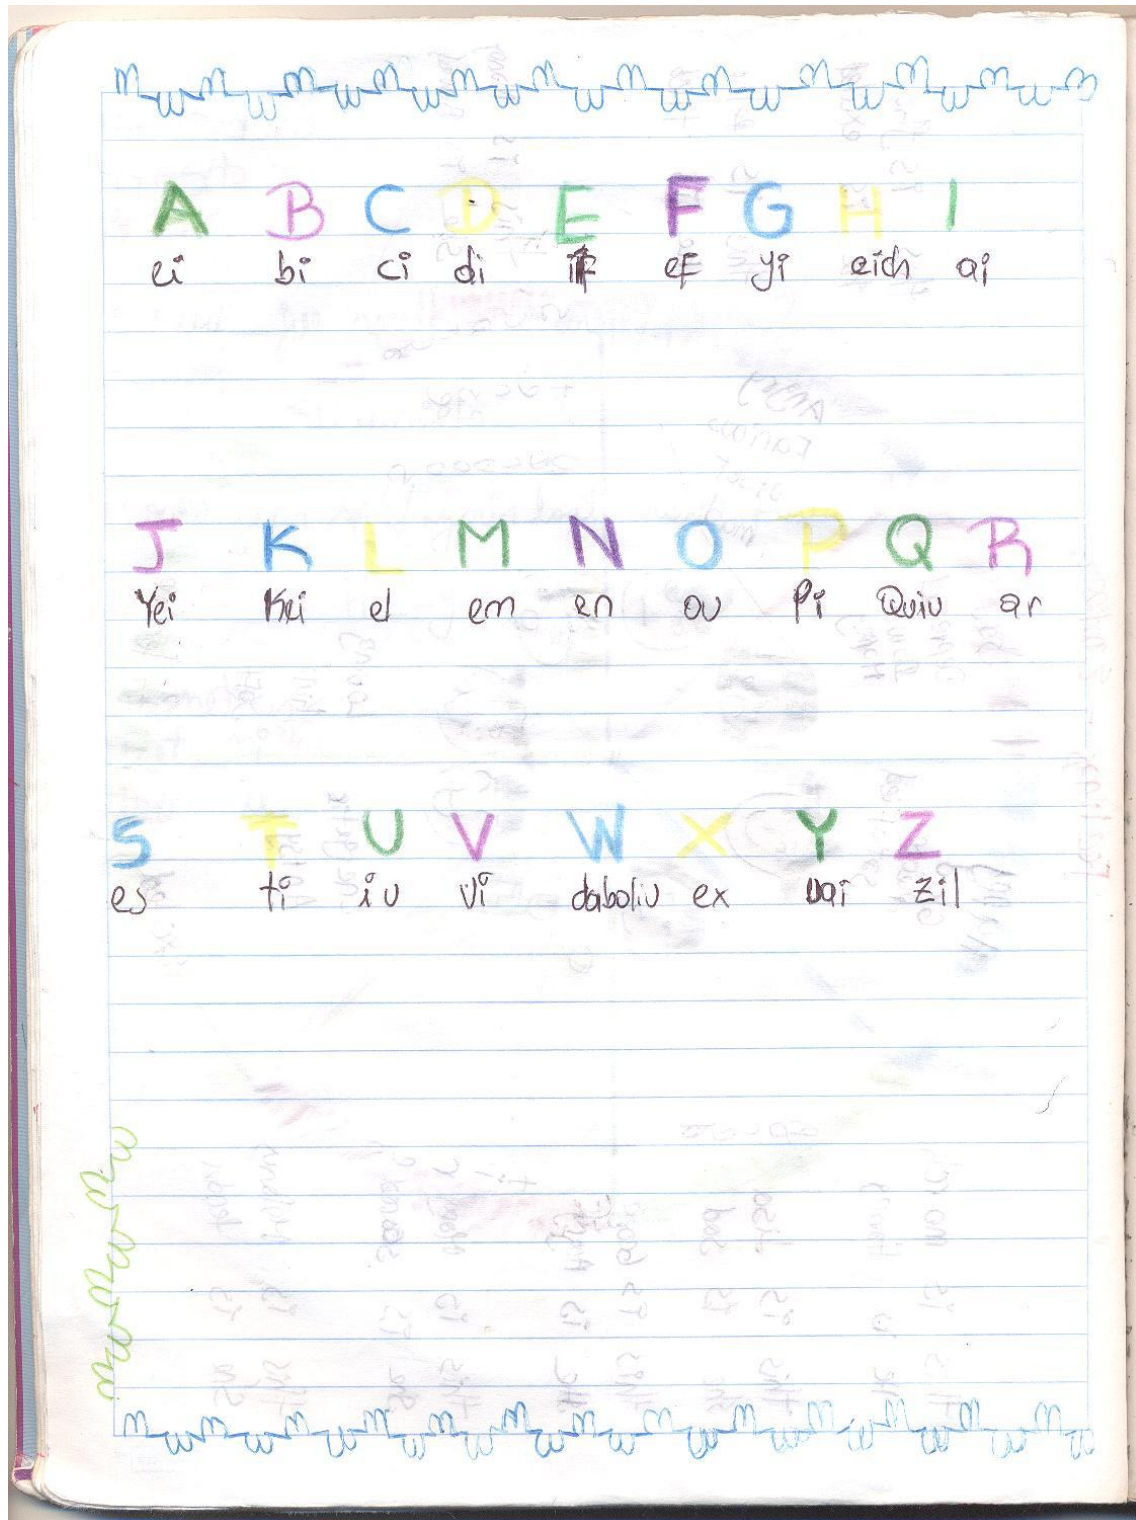 A B C D E F G H I
ei bi ci di i ef yi eich ai
J K L M N O P Q R
Yei Kei el em en ou Pi Quiu ar
S T U V W X Y Z
es ti iu Vi daboliu ex uai Zil